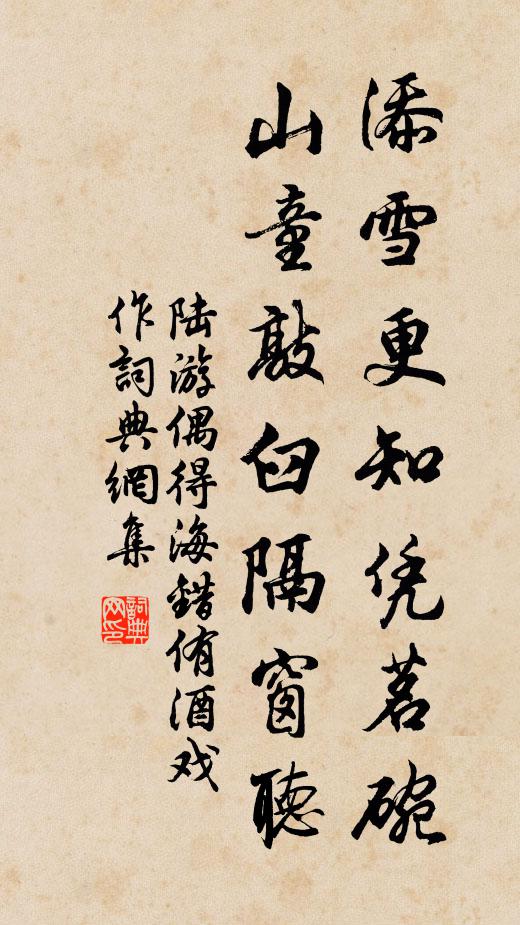 添雪更知凭茗碗
山童敲臼隔窗聽
陆游偶得海錯侑酒戏
作詞典網集
詞典网印